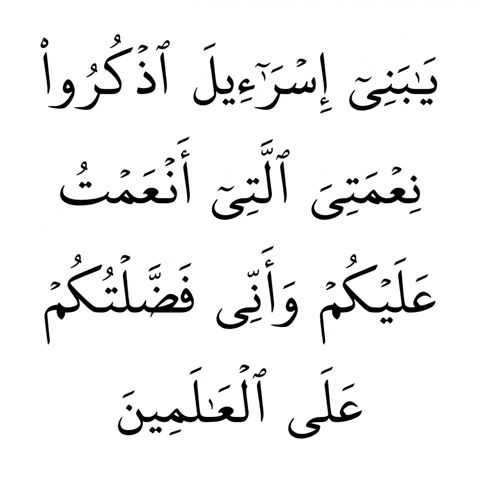 يَـٰبَنِىٓ إِسْرَٰٓءِيلَ ٱذْكُرُوا۟
نِعْمَتِىَ ٱلَّتِىٓ أَنْعَمْتُ
عَلَيْكُمْ وَأَنِّى فَضَّلْتُكُمْ
عَلَى ٱلْعَـٰلَمِينَ